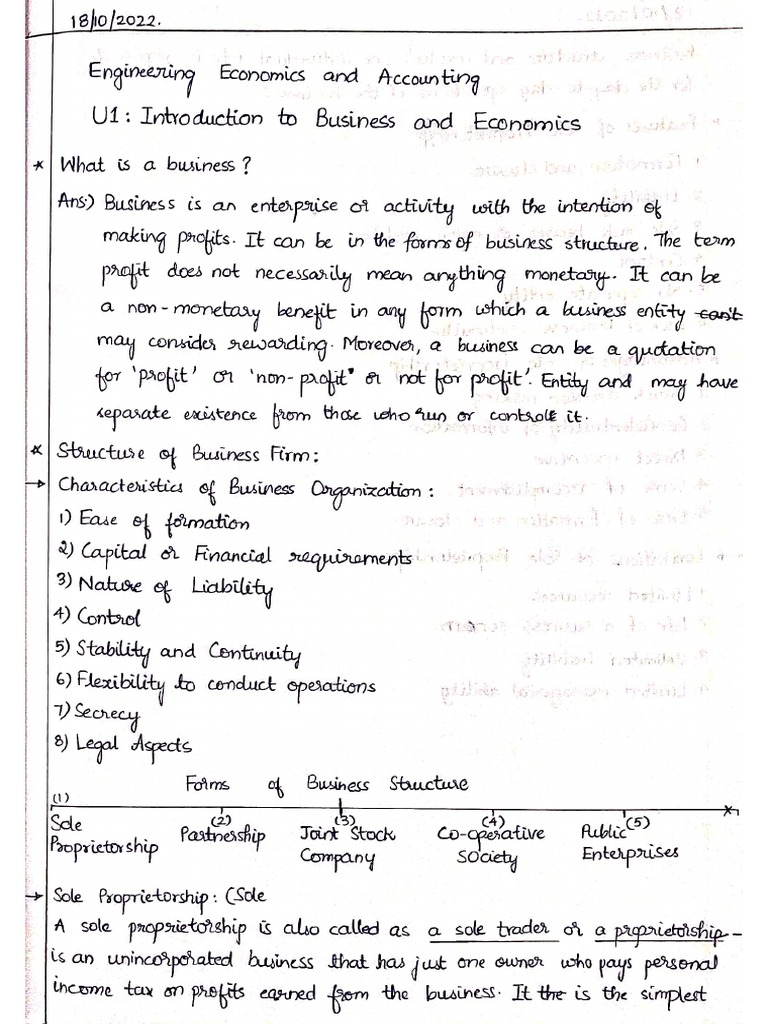 18/10/2022.
Engineering Economics and Accounting
U1: Introduction to Business and Economics
* What is a business?
Ans:) Business is an enterprise or activity with the intention of
making profits. It can be in the forms of business structure. The term
profit does not necessarily mean anything monetary. It can be
a non-monetary benefit in any form which a business entity can't
may consider rewarding. Moreover, a business can be a quotation
for 'profit' or 'non-profit" or 'not for profit'. Entity and may have
separate existence from those who run or controls it.
* Structure of Business Firm:
→ Characteristics of Business Organization:
1) Ease of formation
2) Capital or Financial requirements
3) Nature of Liability
4) Control
5) Stability and Continuity
6) Flexibility to conduct operations
7) Secrecy
8) Legal Aspects
Forms of Business Structure
(1) (2) (3) (4) (5)
Sole Partnership Joint Stock Co-operative Public
Proprietorship Company society Enterprises
→ Sole Proprietorship: (Sole
A sole proprietorship is also called as a sole trader or a proprietorship-
is an unincorporated business that has just one owner who pays personal
income tax on profits earned from the business. It the is the simplest